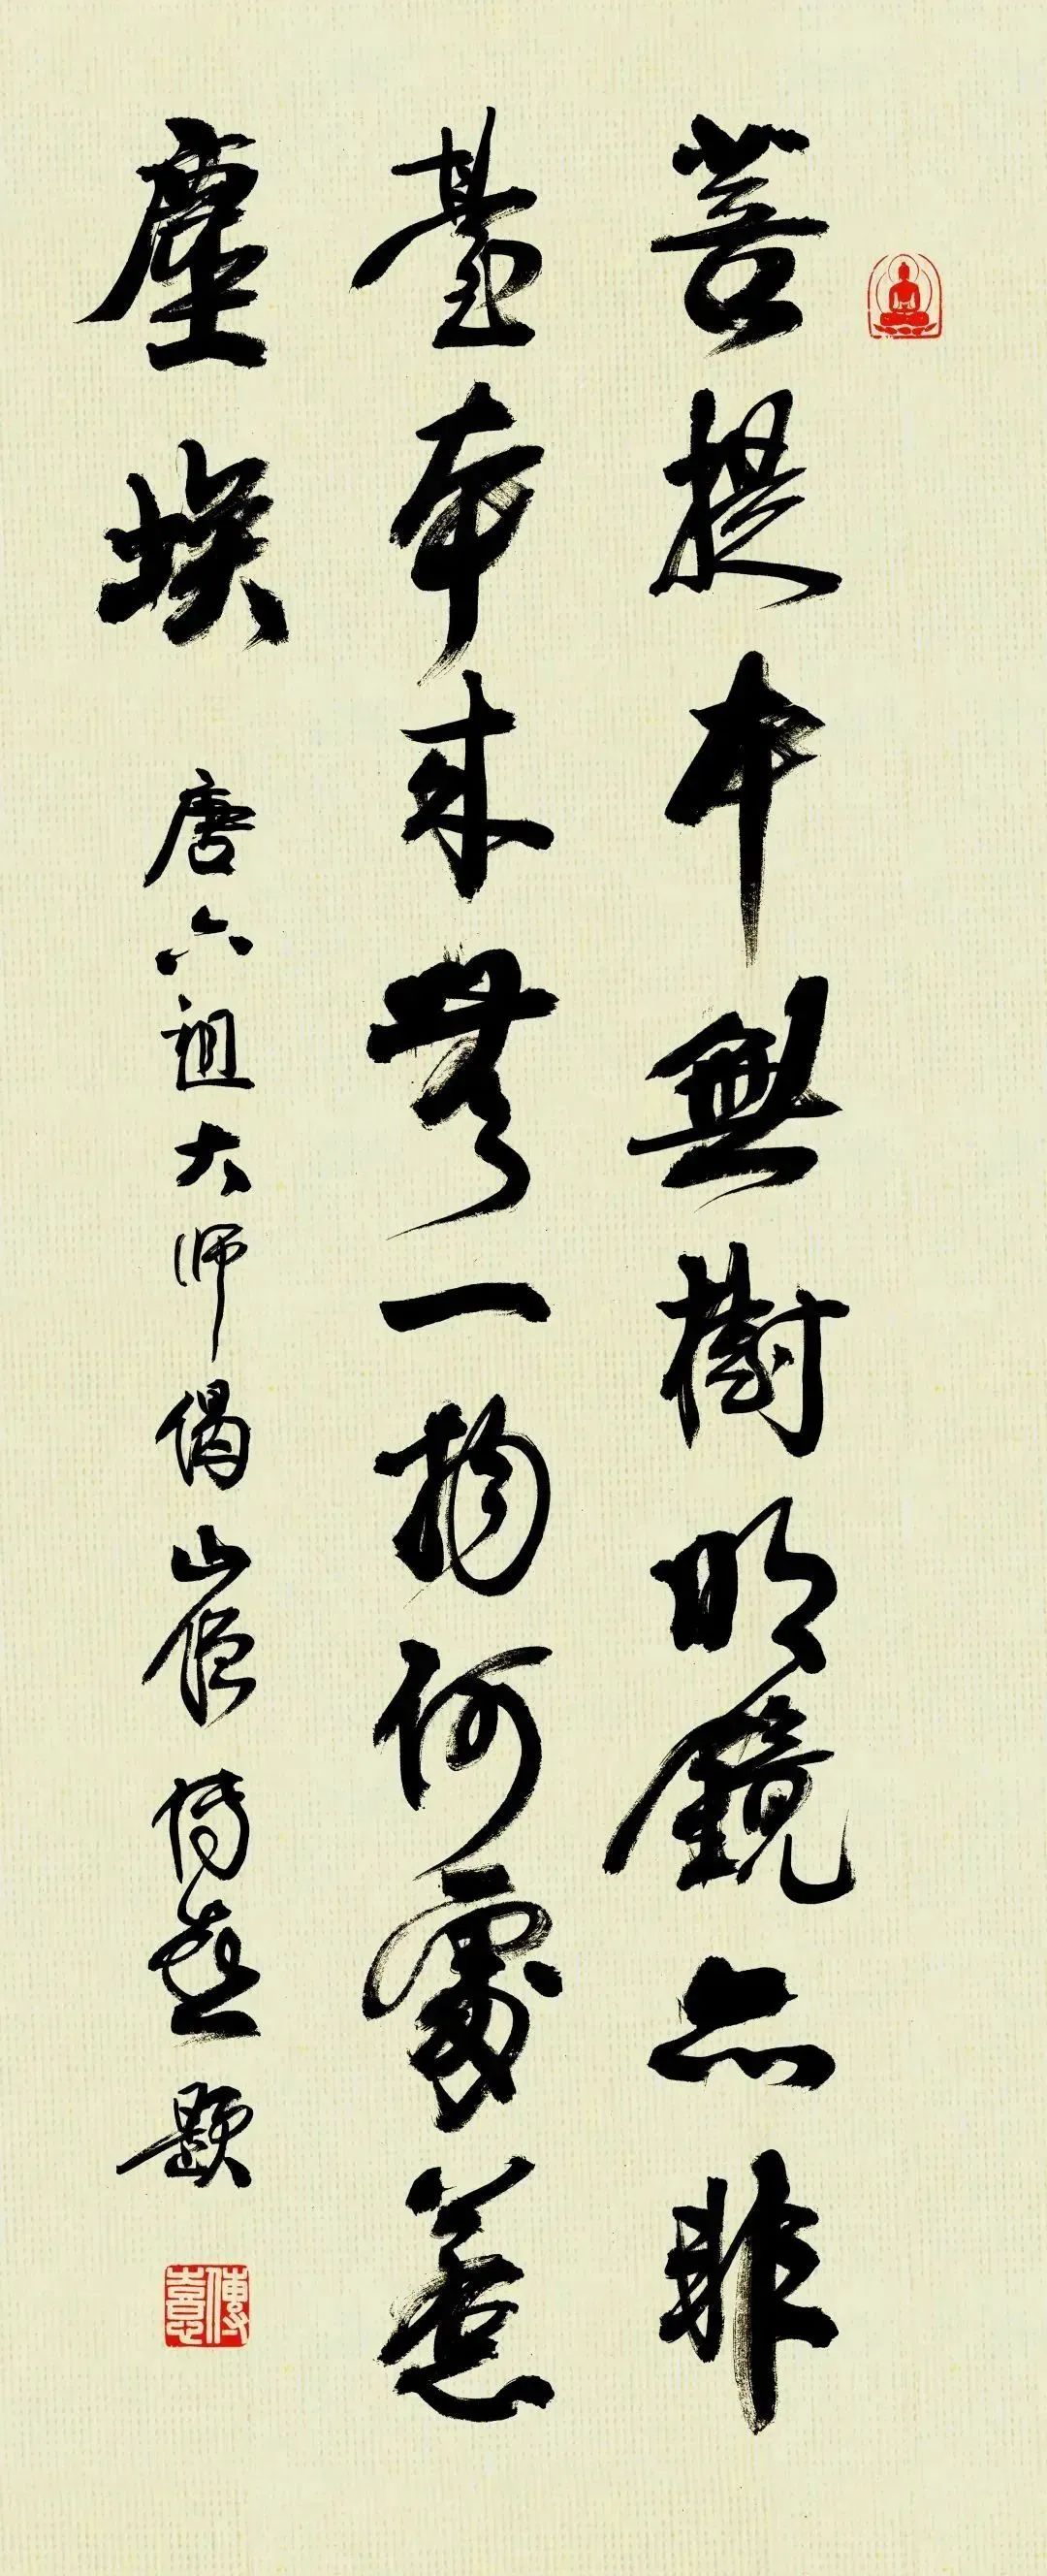 菩提本無樹明鏡亦非
臺本來無一物何處惹
塵埃 唐六祖大师偈山僧傳喜題
傳喜